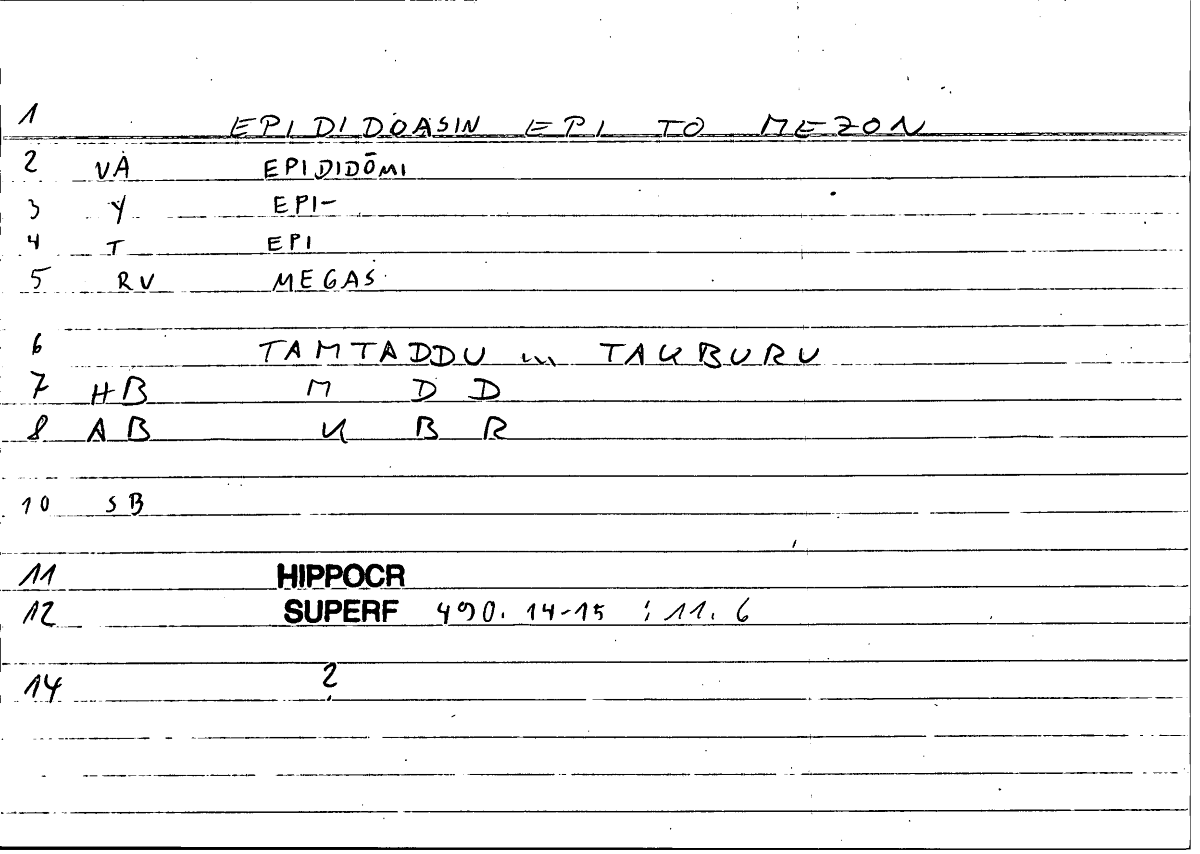 1 EPIDIDOASIN EPI TO MEZON
2 VA EPIDIDŌMI
3 Y EPI-
4 T EPI
5 RV MEGAS
6 TAMTADDU ... TAKBURU
7 HB M D D
8 AB K B R
10 SB
11 HIPPOCR
12 SUPERF 490. 14-15 ; 11. 6
14 2